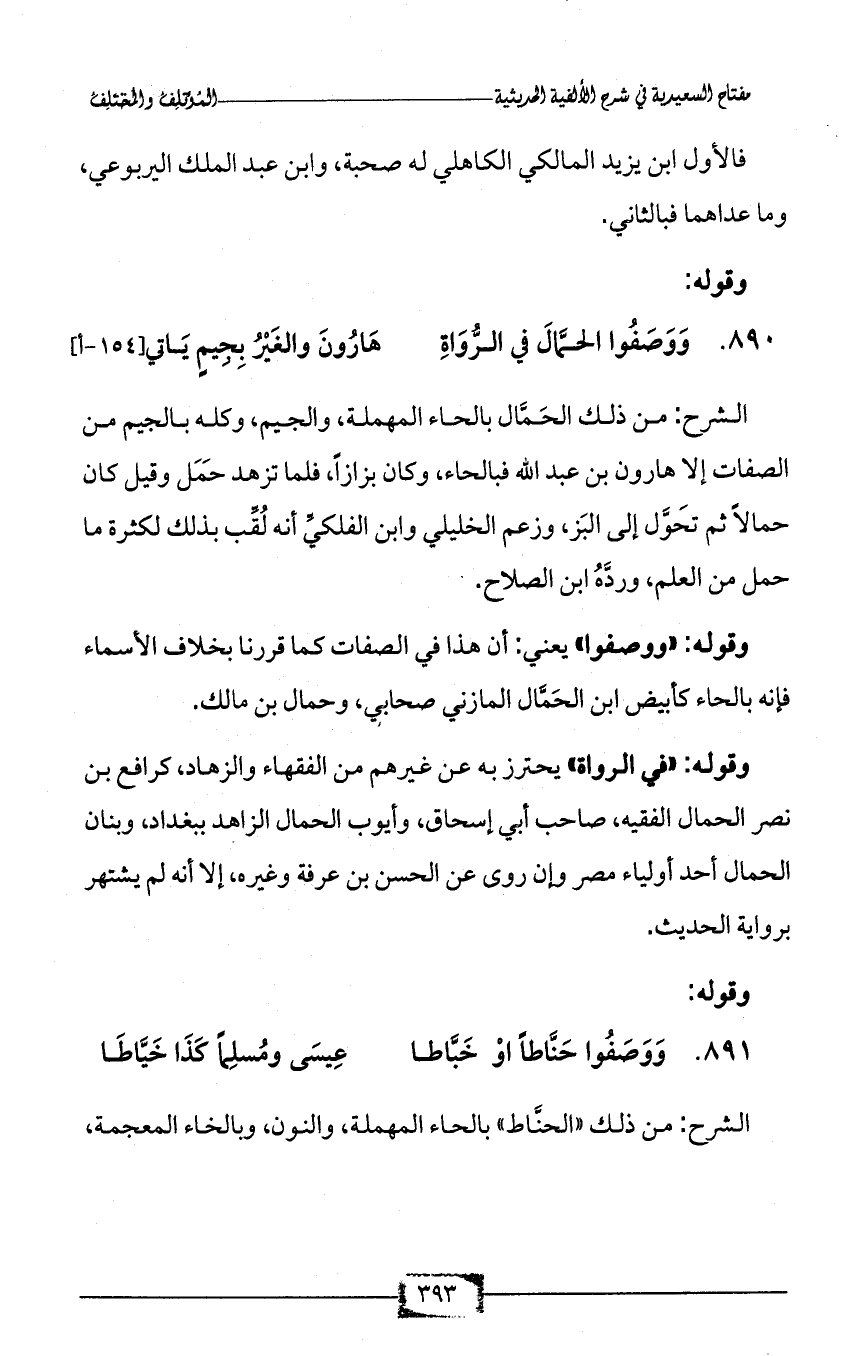 مفتاح السعيدية في شرح الألفية الحديثية ــــــــــــــــــــ المؤتلف والمختلف
فالأول ابن يزيد المالكي الكاهلي له صحبة، وابن عبد الملك اليربوعي،
وما عداهما فبالثاني.
وقوله:
٨٩٠. وَوَصَفُوا الحَـمَّالَ في الـرُّوَاةِ هَارُونَ والغَيْرُ بِجِيمٍ يَـاتي[١٥٤-أ]
الـشرح: مـن ذلـك الحَـمَّال بالحـاء المهملـة، والجـيم، وكلـه بـالجيم مـن
الصفات إلا هارون بن عبد الله فبالحاء، وكان بزازاً، فلما تزهد حَمَل وقيل كان
حمالاً ثم تحَوَّل إلى البَز، وزعم الخليلي وابن الفلكيِّ أنه لُقِّب بذلك لكثرة ما
حمل من العلم، وردَّهُ ابن الصلاح.
وقوله: «ووصفوا» يعني: أن هذا في الصفات كما قررنا بخلاف الأسماء
فإنه بالحاء كأبيض ابن الحَمَّال المازني صحابي، وحمال بن مالك.
وقولـه: «في الـرواة» يحـترز بـه عـن غـيرهم مـن الفقهـاء والزهـاد، كرافع بـن
نصر الحمال الفقيه، صاحب أبي إسحاق، وأيوب الحمال الزاهد ببغداد، وبنان
الحمال أحد أولياء مصر وإن روى عن الحسن بن عرفة وغيره، إلا أنه لم يشتهر
برواية الحديث.
وقوله:
٨٩١. وَوَصَفُوا حَنَّاطاً اوْ خَبَّاطـا عِيسَى ومُسلِماً كَذَا خَيَّاطَـا
الشرح: مـن ذلـك «الحنَّاط» بالحـاء المهملـة، والنون، وبالخـاء المعجمـة،
٣٩٣